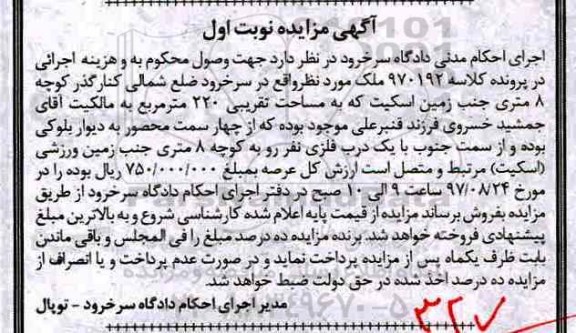 آگهی مزایده نوبت اول
اجرای احکام مدنی دادگاه سرخرود در نظر دارد جهت وصول محکوم به و هزینه اجرائی
در پرونده کلاسه ۹۷۰۱۹۲ ملک مورد نظرواقع در سرخرود ضلع شمالی کنارگذر کوچه
۸ متری جنب زمین اسکیت که به مساحت تقریبی ۲۲۰ مترمربع به مالکیت آقای
جمشید خسروی فرزند قنبرعلی موجود بوده که از چهار سمت محصور به دیوار بلوکی
بوده و از سمت جنوب با یک درب فلزی نفر رو به کوچه ۸ متری جنب زمین ورزشی
(اسکیت) مرتبط و متصل است ارزش کل عرصه بمبلغ ۷۵۰/۰۰۰/۰۰۰ ریال بوده را در
مورخ ۹۷/۰۸/۲۴ ساعت ۹ الی ۱۰ صبح در دفتر اجرای احکام دادگاه سرخرود از طریق
مزایده بفروش برساند مزایده از قیمت پایه اعلام شده کارشناسی شروع و به بالاترین مبلغ
پیشنهادی فروخته خواهد شد. برنده مزایده ده درصد مبلغ را فی المجلس و باقی ماندن
بابت ظرف یکماه پس از مزایده پرداخت نماید و در صورت عدم پرداخت و یا انصراف از
مزایده ده درصد اخذ شده در حق دولت ضبط خواهد شد.
مدیر اجرای احکام دادگاه سرخرود - توپال
۳۲۷